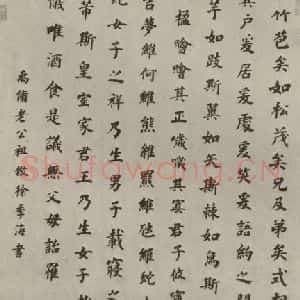 竹苞矣如松茂矣兄及弟矣式
其戶爰居爰處爰笑爰語約之閣
芋如跂斯翼如矢斯棘如鳥斯
楹噲噲其正噦噦其冥君子攸寧
吉夢維何維熊維羆維虺維蛇
蛇女子之祥乃生男子載寢之
芾斯皇室家君王乃生女子載
儀唯酒食是議無父母詒罹
老公祖倣徐季海書
Shufawang.cn